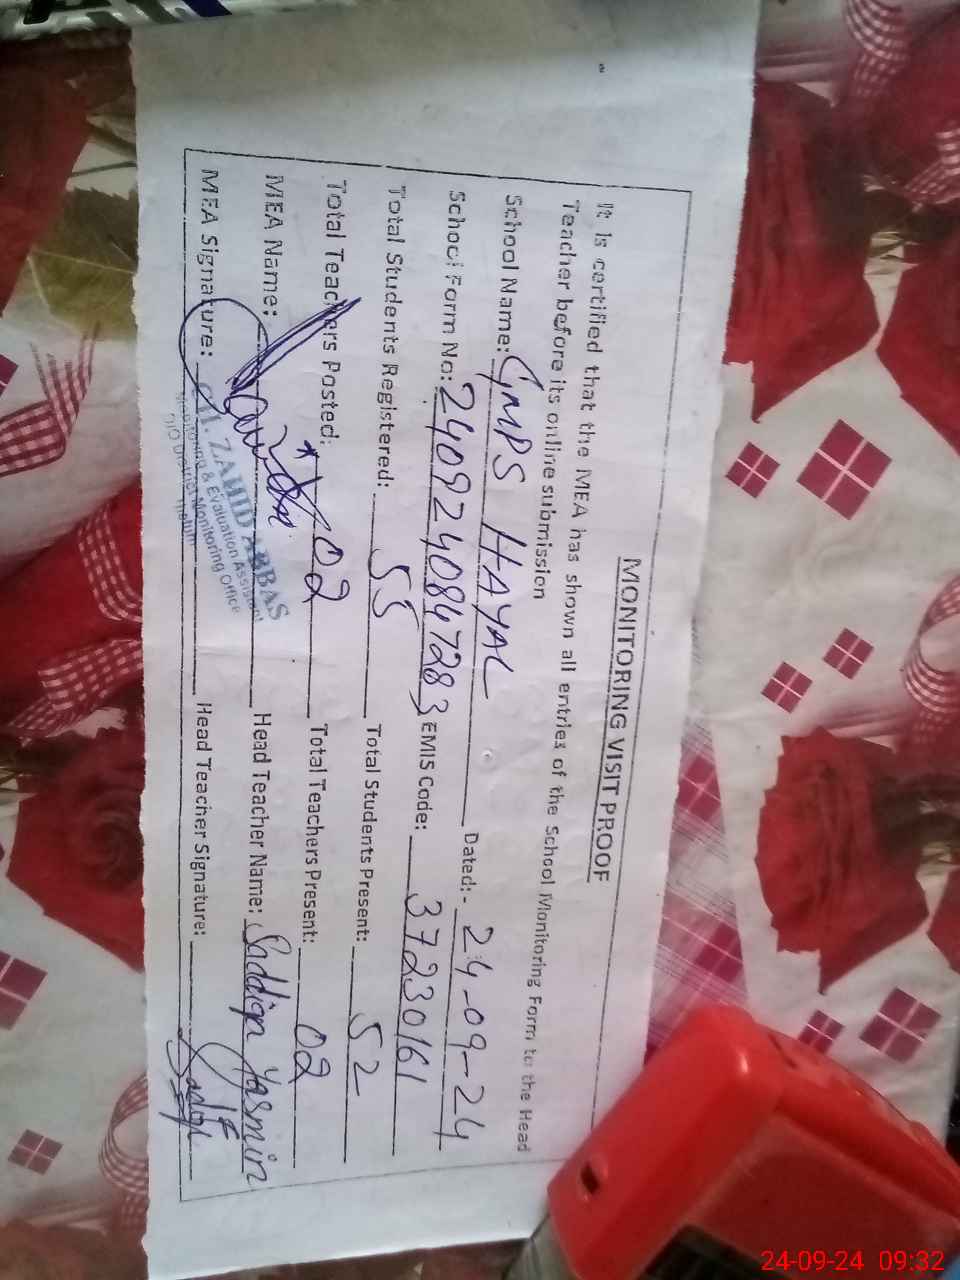 MONITORING VISIT PROOF
It is certified that the MEA has shown all entries of the School Monitoring Form to the Head
Teacher before its online submission
School Name: GMPS HAYAL Dated:- 24-09-24
School Form No: 2409240847283 EMIS Code: 37230161
Total Students Registered: 55 Total Students Present: 52
Total Teachers Posted: 02 Total Teachers Present: 02
MEA Name: Head Teacher Name: Saddiqa Yasmin
MEA Signature: Head Teacher Signature:
M. ZAHID ABBAS
Monitoring & Evaluation Assistant
O/O District Monitoring Office
Jhelum
24-09-24 09:32